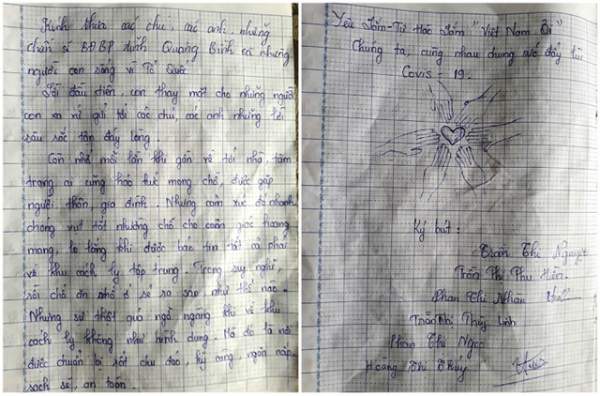 Kính thưa các chú, các anh, những
chiến sĩ BĐBP tỉnh Quảng Bình và những
người con sống vì Tổ Quốc
Lời đầu tiên, con thay mặt cho những người
con xa xứ gửi tới các chú, các anh những lời
sâu sắc tận đáy lòng
Còn nhớ mỗi lần khi gần về tới nhà, tâm
trạng ai cũng háo hức mong chờ, được gặp
người thân, gia đình. Nhưng cảm xúc đó nhanh
chóng vụt tắt nhường chỗ cho cảm giác hoang
mang, lo lắng khi được báo tin tất cả phải
về khu cách ly tập trung. Trong suy nghĩ,
rồi chỗ ăn chỗ ở sẽ ra sao, như thế nào.
Nhưng sự thật quá ngỡ ngàng khi về khu
cách ly không như hình dung. Mà đó là nơi
được chuẩn bị rất chu đáo, kỹ càng, ngăn nắp
sạch sẽ, an toàn.
Yêu lắm - Tự Hào lắm "Việt Nam Ơi"
Chúng ta, cùng nhau chung sức đẩy lùi
Covis - 19.
Ký bút:
Trần Thị Nguyệt
Trần Thị Thu Hiền.
Phan Thị Nhàn
Trần Thị Thùy Linh
Phan Thị Ngọc
Hoàng Thị Thủy